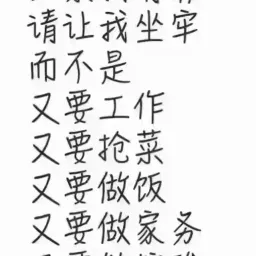 请让我坐牢
而不是
又要工作
又要抢菜
又要做饭
又要做家务